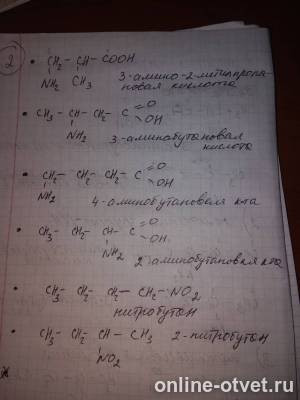 2
CH₂ - CH - COOH
NH₂ CH₃
3-амино-2-метилпропа-
новая кислота
CH₃ - CH - CH₂ - C = O
- OH
NH₂
3-аминобутановая
кислота
CH₂ - CH₂ - CH₂ - C = O
- OH
NH₂
4-аминобутановая к-та
CH₃ - CH₂ - CH - C = O
- OH
NH₂
2-аминобутановая к-та
CH₃ - CH₂ - CH₂ - CH₂ - NO₂
нитробутан
CH₃ - CH₂ - CH - CH₃ 2-нитробутан
NO₂
online-otvet.ru